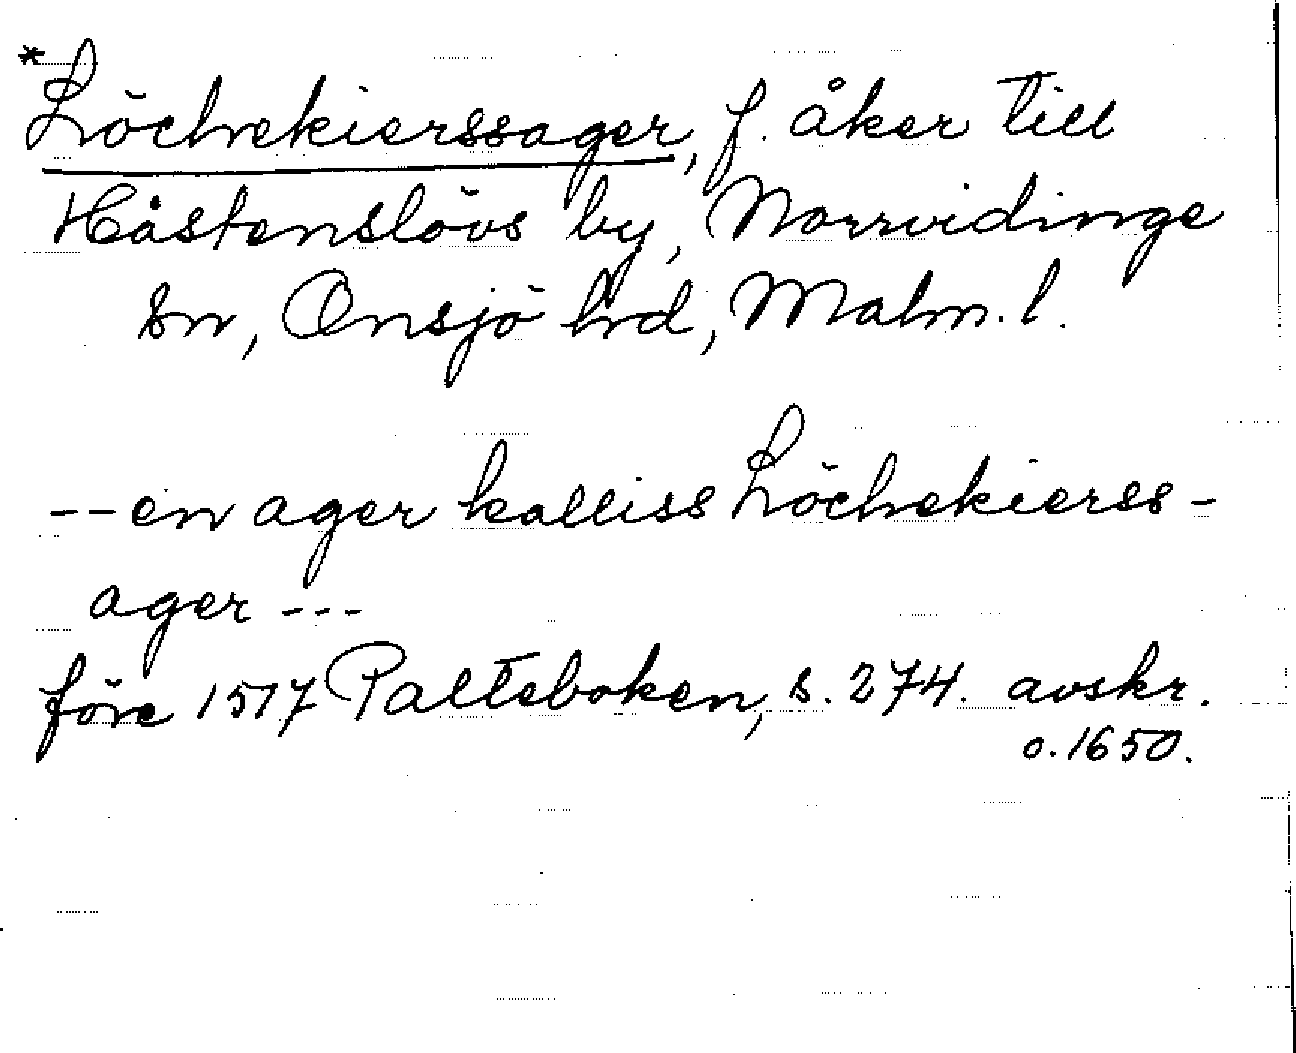 *Löchekierssager, f. åker till
Håstenslövs by, Norrvidinge
sn, Onsjö hd, Malm. l.
-- en ager kalliss Löchekierss-
ager ---
före 1517 Palteboken, s. 274. avskr.
o. 1650.